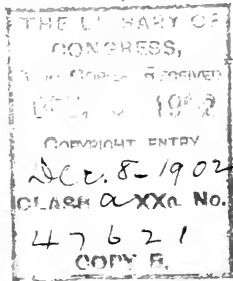 THE LIBRARY OF
CONGRESS,
Two Copies Received
DEC. 1902
COPYRIGHT ENTRY
Dec. 8-1902
CLASS a XXc. No.
47621
COPY B.